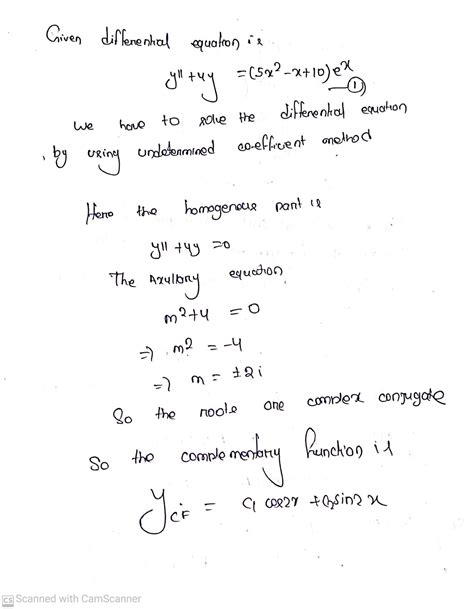 Given differential equation is
y'' + 4y = (5x² - x + 10) eˣ
— ①
we have to solve the differential equation
by using undetermined co-efficient method
Here the homogenous part is
y'' + 4y = 0
The Axullary equation
m² + 4 = 0
⇒ m² = -4
⇒ m = ±2i
So the roots are complex conjugate
So the complementary function is
y_CF = C₁ cos2x + C₂ sin2x
CS Scanned with CamScanner